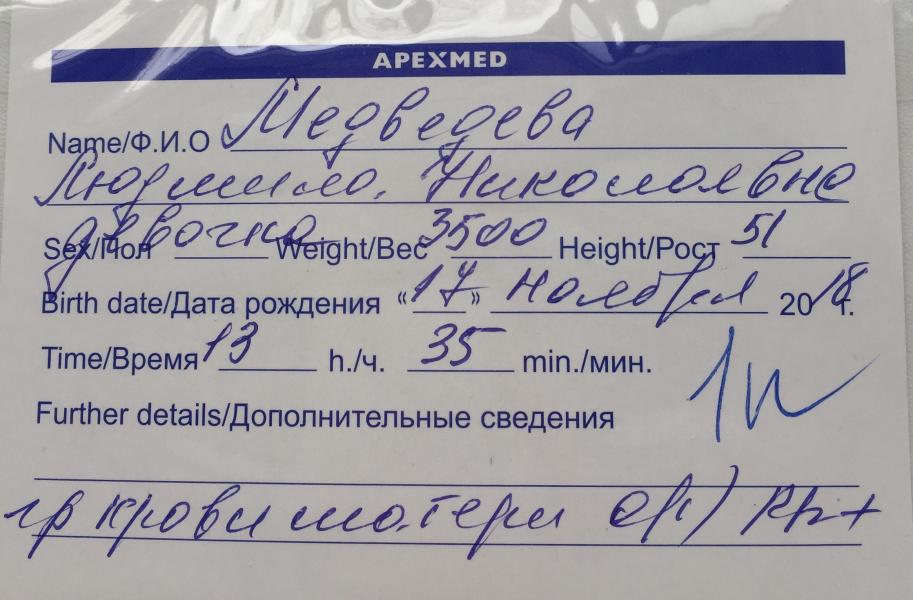 APEXMED
Name/Ф.И.О Медведева
Людмила Николаевна
Sex/Пол девочка Weight/Вес 3500 Height/Рост 51
Birth date/Дата рождения «17» ноября 2018 г.
Time/Время 13 h./ч. 35 min./мин.
Further details/Дополнительные сведения
гр крови матери O(I) Rh+